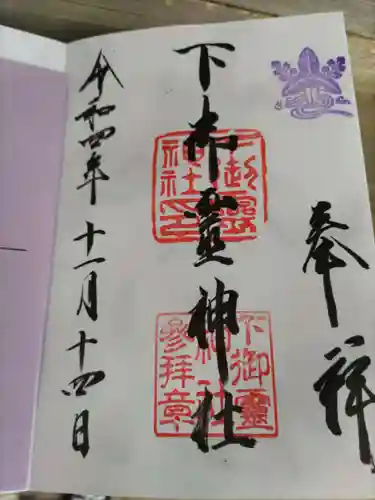 奉拝
下御靈神社
下御靈神社印
下御靈神社参拝章
令和四年十一月十四日